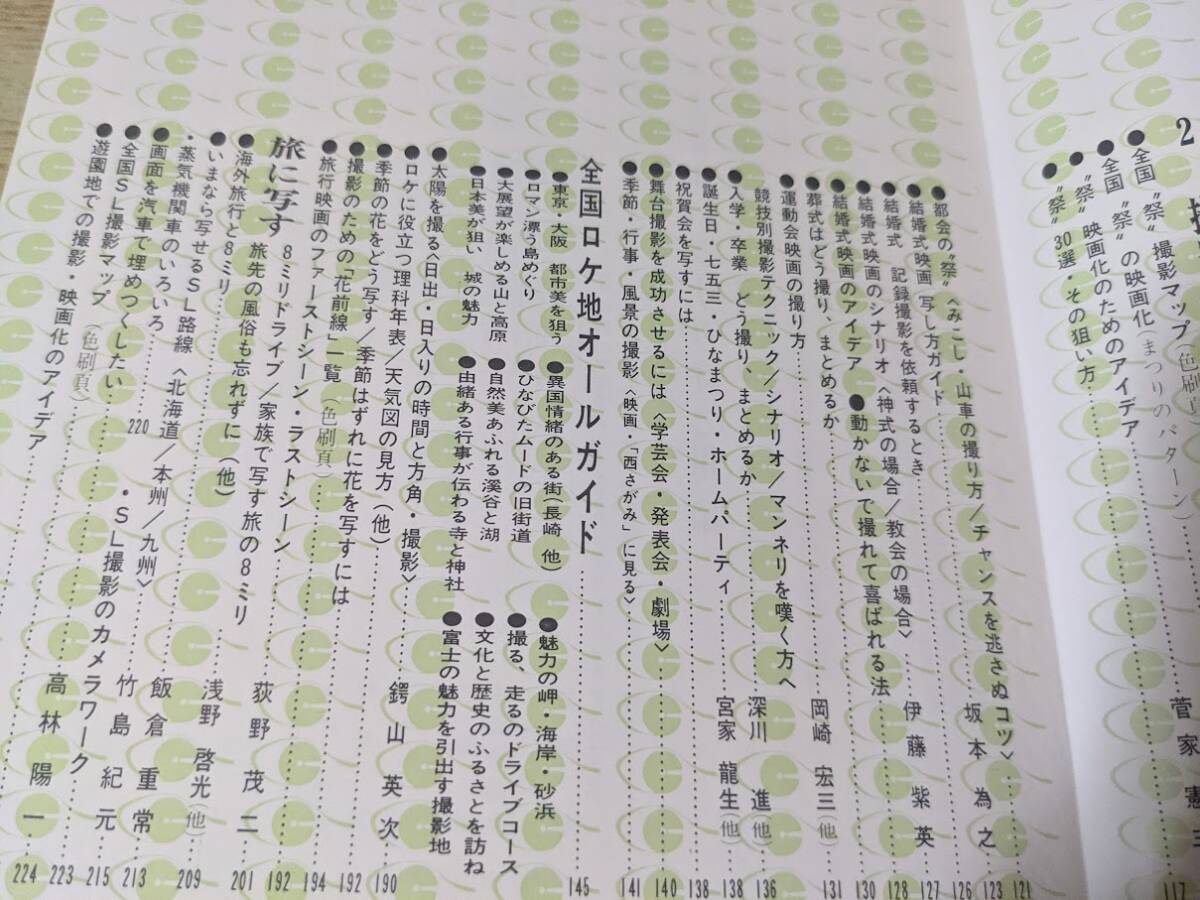 2
全国〝祭〟撮影マップ(色刷頁
全国〝祭〟の映画化(まつりのパターン)
〝祭〟映画化のためのアイデア
〝祭〟30選・その狙い方
菅家憲三
117
●都会の〝祭〟〈みこし・山車の撮り方/チャンスを逃さぬコツ〉 121
●結婚式映画 写し方ガイド 坂本為之 123
●結婚式 記録撮影を依頼するとき 126
●結婚式映画のシナリオ〈神式の場合/教会の場合〉 伊藤紫英 127
●結婚式映画のアイデア ●動かないで撮れて喜ばれる法 128
●葬式はどう撮り、まとめるか 130
●運動会映画の撮り方 岡崎宏三(他) 131
競技別撮影テクニック/シナリオ/マンネリを嘆く方へ
●入学・卒業 どう撮り、まとめるか 深川進(他) 136
●誕生日・七五三・ひなまつり・ホームパーティ 宮家龍生(他) 138
●祝賀会を写すには 138
●舞台撮影を成功させるには〈学芸会・発表会・劇場〉 140
●季節・行事・風景の撮影〈映画・「西さがみ」に見る〉 141
全国ロケ地オールガイド 145
●東京・大阪 都市美を狙う
●ロマン漂う島めぐり
●大展望が楽しめる山と高原
●日本美が狙い 城の魅力
●異国情緒のある街(長崎 他)
●ひなびたムードの旧街道
●自然美あふれる渓谷と湖
●由緒ある行事が伝わる寺と神社
●魅力の岬・海岸・砂浜
●撮る、走るのドライブコース
●文化と歴史のふるさとを訪ね
●富士の魅力を引出す撮影地
●太陽を撮る〈日出・日入りの時間と方角・撮影〉
●ロケに役立つ理科年表/天気図の見方(他) 鍔山英次 190
●季節の花をどう写す/季節はずれに花を写すには 192
●撮影のための「花前線」一覧(色刷頁) 194
●旅行映画のファーストシーン・ラストシーン 192
旅に写す 8ミリドライブ/家族で写す旅の8ミリ 荻野茂二 201
●海外旅行と8ミリ 旅先の風俗も忘れずに(他) 浅野啓光(他) 209
●いまなら写せるSL路線〈北海道/本州/九州〉 飯倉重常 213
・蒸気機関車のいろいろ 220 ・SL撮影のカメラワーク
●画面を汽車で埋めつくしたい 竹島紀元 215
●全国SL撮影マップ(色刷頁) 223
●遊園地での撮影・映画化のアイデア 高林陽一 224